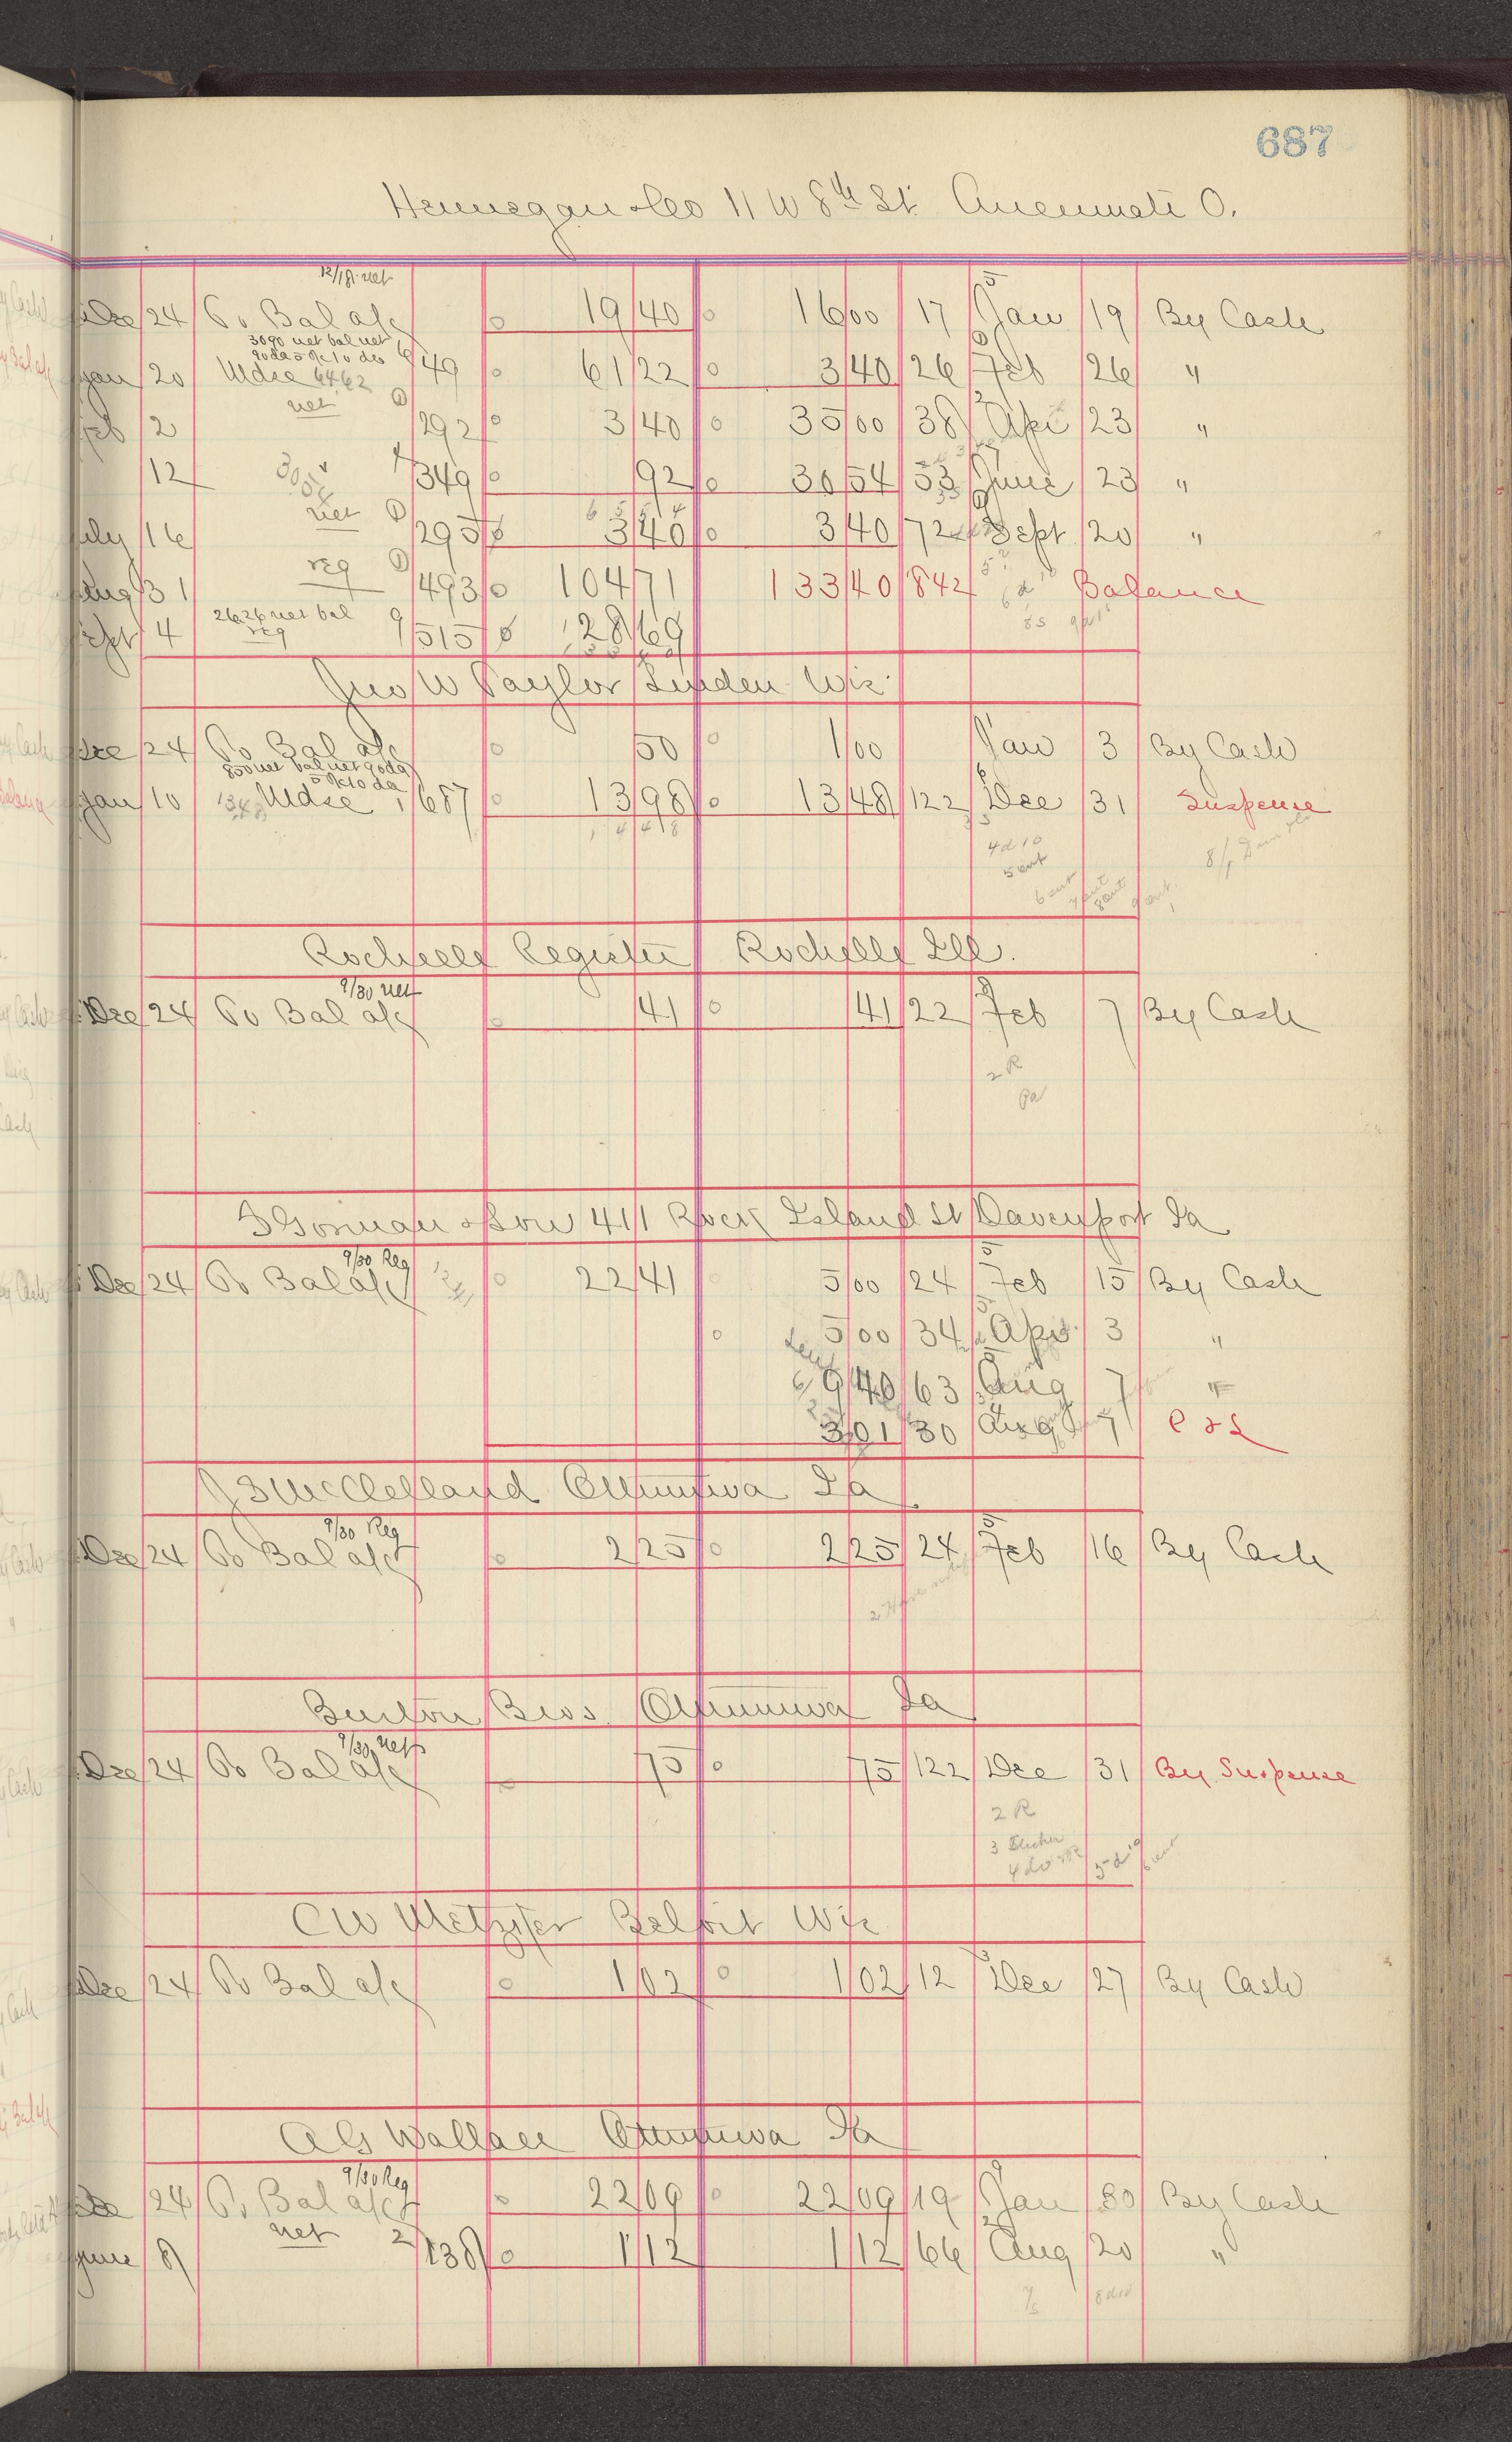 687
Hennegan & Co 11 W 8th St. Cincinnati O.
12/18 net
Dec 24 To Bal a/c 0 19 40 0 16 00 17 5 Jan 19 By Cash
3090 net bal net
90 da 5% 10 da
Jan 20 Mdse 6462 49 0 61 22 0 3 40 26 Feb 26 "
net
Feb 2 292 0 3 40 0 35 00 38 Apr 23 "
12 349 0 92 0 30 54 53 June 23 "
net
July 16 295 3 40 0 3 40 72 Sept 20 "
reg
Aug 31 493 0 104 71 133 40 842 Balance
2626 net bal
reg
Sept 4 9 515 28 69
Jno W Taylor Linden Wis
Dec 24 To Bal a/c 0 50 0 1 00 Jan 3 By Cash
850 net bal net 90 da
5% 10 da
Jan 10 1348 Mdse 1 687 0 13 98 0 13 48 122 Dec 31 Suspense
1 4 4 8
4 d 10
5 out
6 out 7 out 8 out 9 out
Rochelle Register Rochelle Ill.
9/30 net
Dec 24 To Bal a/c 0 41 0 41 22 Feb 7 By Cash
2 R
Pa
S Gorman & Son 411 Rock Island St Davenport Ia
9/30 Reg
Dec 24 To Bal a/c 0 22 41 5 00 24 5 Feb 15 By Cash
0 5 00 34 Apr 3 "
9 40 63 Aug 7 "
3 01 30 Aug 7 P & L
J S McClelland Ottumwa Ia
9/30 Reg
Dec 24 To Bal a/c 0 2 25 0 2 25 24 5 Feb 16 By Cash
Burton Bros. Ottumwa Ia
9/30 net
Dec 24 To Bal a/c 75 0 75 122 Dec 31 By Suspense
2 R
3
C W Metzger Beloit Wis
Dec 24 To Bal a/c 0 1 02 0 1 02 12 Dec 27 By Cash
A G Wallace Ottumwa Ia
9/30 Reg
Dec 24 To Bal a/c 0 22 09 0 22 09 19 Jan 30 By Cash
net
June 8 2 138 0 1 12 1 12 66 Aug 20 "